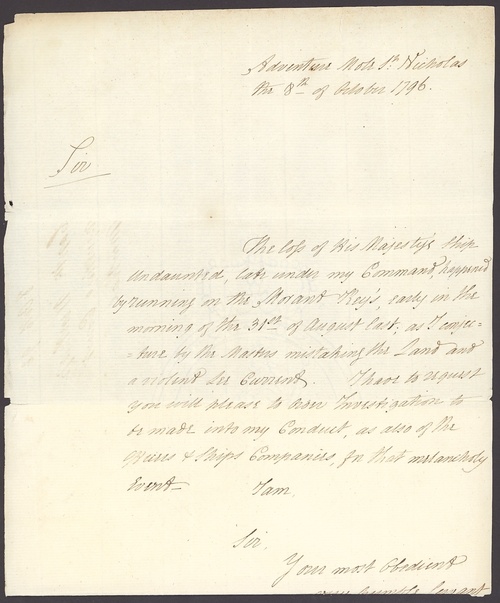 Adventure Mole St. Nicholas
the 8th of October 1796.
Sir
The loss of His Majesty's Ship
Undaunted, late under my Command, happened
by running on the Morant Key's early in the
morning of the 31st of August last, as I conjec-
-ture by the Masters mistaking the Land and
a violent Lee Current. I have to request
you will please to order Investigation to
be made into my Conduct, as also of the
Officers & Ships Companies, for that melancholy
Event—
I am
Sir.
Your most Obedient
very humble Servant